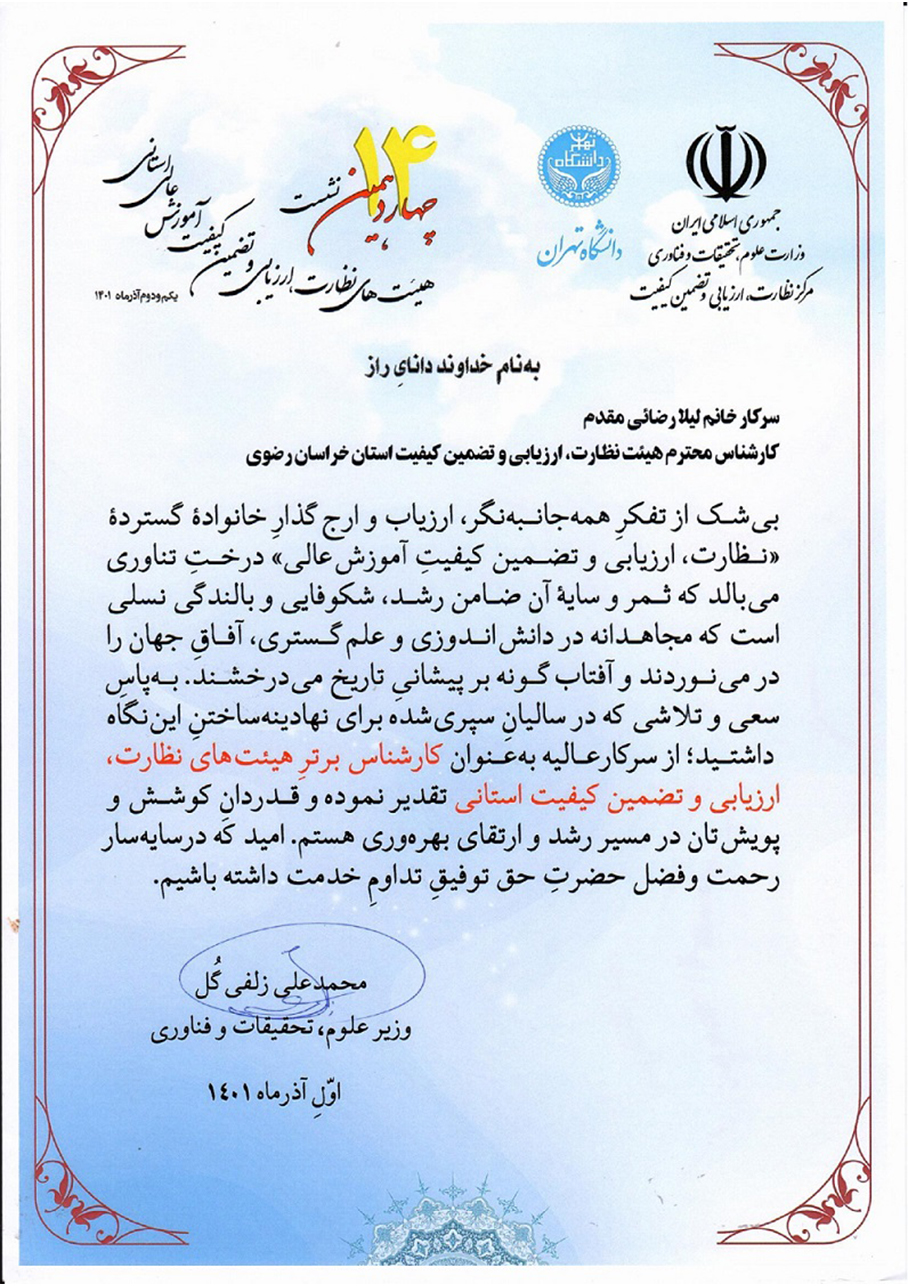 جمهوری اسلامی ایران
وزارت علوم، تحقیقات و فناوری
مرکز نظارت، ارزیابی و تضمین کیفیت
تهران
دانشگاه
دانشگاه تهران
۱۴
چهاردهمین نشست
هیئت های نظارت، ارزیابی و تضمین کیفیت آموزش عالی استانی
یکم و دوم آذرماه ۱۴۰۱
به‌نام خداوند دانایِ راز
سرکار خانم لیلا رضائی مقدم
کارشناس محترم هیئت نظارت، ارزیابی و تضمین کیفیت استان خراسان رضوی
بی‌شک از تفکرِ همه‌جانبه‌نگر، ارزیاب و ارج گذارِ خانوادهٔ گستردهٔ
«نظارت، ارزیابی و تضمین کیفیتِ آموزش عالی» درختِ تناوری
می‌بالد که ثمر و سایهٔ آن ضامن رشد، شکوفایی و بالندگی نسلی
است که مجاهدانه در دانش‌اندوزی و علم‌گستری، آفاقِ جهان را
در می‌نوردند و آفتاب گونه بر پیشانیِ تاریخ می‌درخشند. به‌پاسِ
سعی و تلاشی که در سالیانِ سپری‌شده برای نهادینه‌ساختنِ این‌نگاه
داشتید؛ از سرکارعالیه به‌عنوان کارشناس برترِ هیئت‌های نظارت،
ارزیابی و تضمین کیفیت استانی تقدیر نموده و قدردانِ کوشش و
پویش‌تان در مسیر رشد و ارتقای بهره‌وری هستم. امید که درسایه‌سار
رحمت وفضل حضرتِ حق توفیقِ تداومِ خدمت داشته باشیم.
محمدعلی زلفی گُل
وزیر علوم، تحقیقات و فناوری
اوّلِ آذرماه ۱۴۰۱